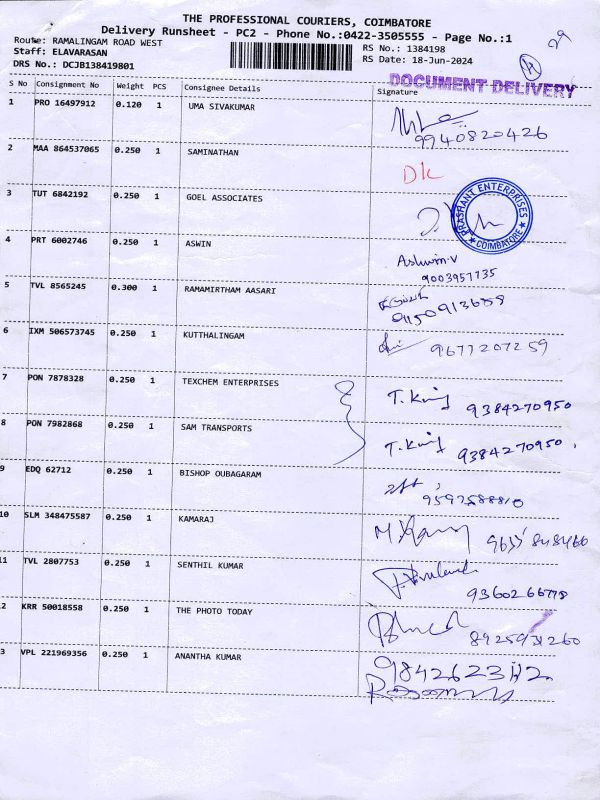 THE PROFESSIONAL COURIERS, COIMBATORE
Delivery Runsheet - PC2 - Phone No.:0422-3505555 - Page No.:1
Route: RAMALINGAM ROAD WEST
Staff: ELAVARASAN
DRS No.: DCJB138419801
RS No.: 1384198
RS Date: 18-Jun-2024
DOCUMENT DELIVERY
S No Consignment No Weight PCS Consignee Details Signature
1 PRO 16497912 0.120 1 UMA SIVAKUMAR
9940820426
2 MAA 864537065 0.250 1 SAMINATHAN
DK
3 TUT 6842192 0.250 1 GOEL ASSOCIATES
PRASHANT ENTERPRISES
★ COIMBATORE ★
4 PRT 6002746 0.250 1 ASWIN
Ashwin.V
9003957735
5 TVL 8565245 0.300 1 RAMAMIRTHAM AASARI
6 IXM 506573745 0.250 1 KUTTHALINGAM
9677207259
7 PON 7878328 0.250 1 TEXCHEM ENTERPRISES
9384270950
8 PON 7982868 0.250 1 SAM TRANSPORTS
9384270950
9 EDQ 62712 0.250 1 BISHOP OUBAGARAM
10 SLM 348475587 0.250 1 KAMARAJ
11 TVL 2807753 0.250 1 SENTHIL KUMAR
12 KRR 50018558 0.250 1 THE PHOTO TODAY
13 VPL 221969356 0.250 1 ANANTHA KUMAR